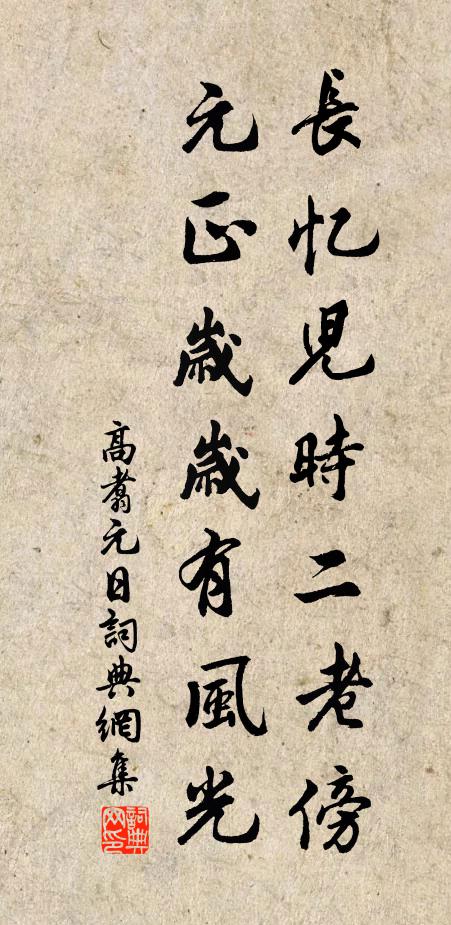 長忆兒時二老傍
元正歲歲有風光
高翥元日詞典網集
詞典网印